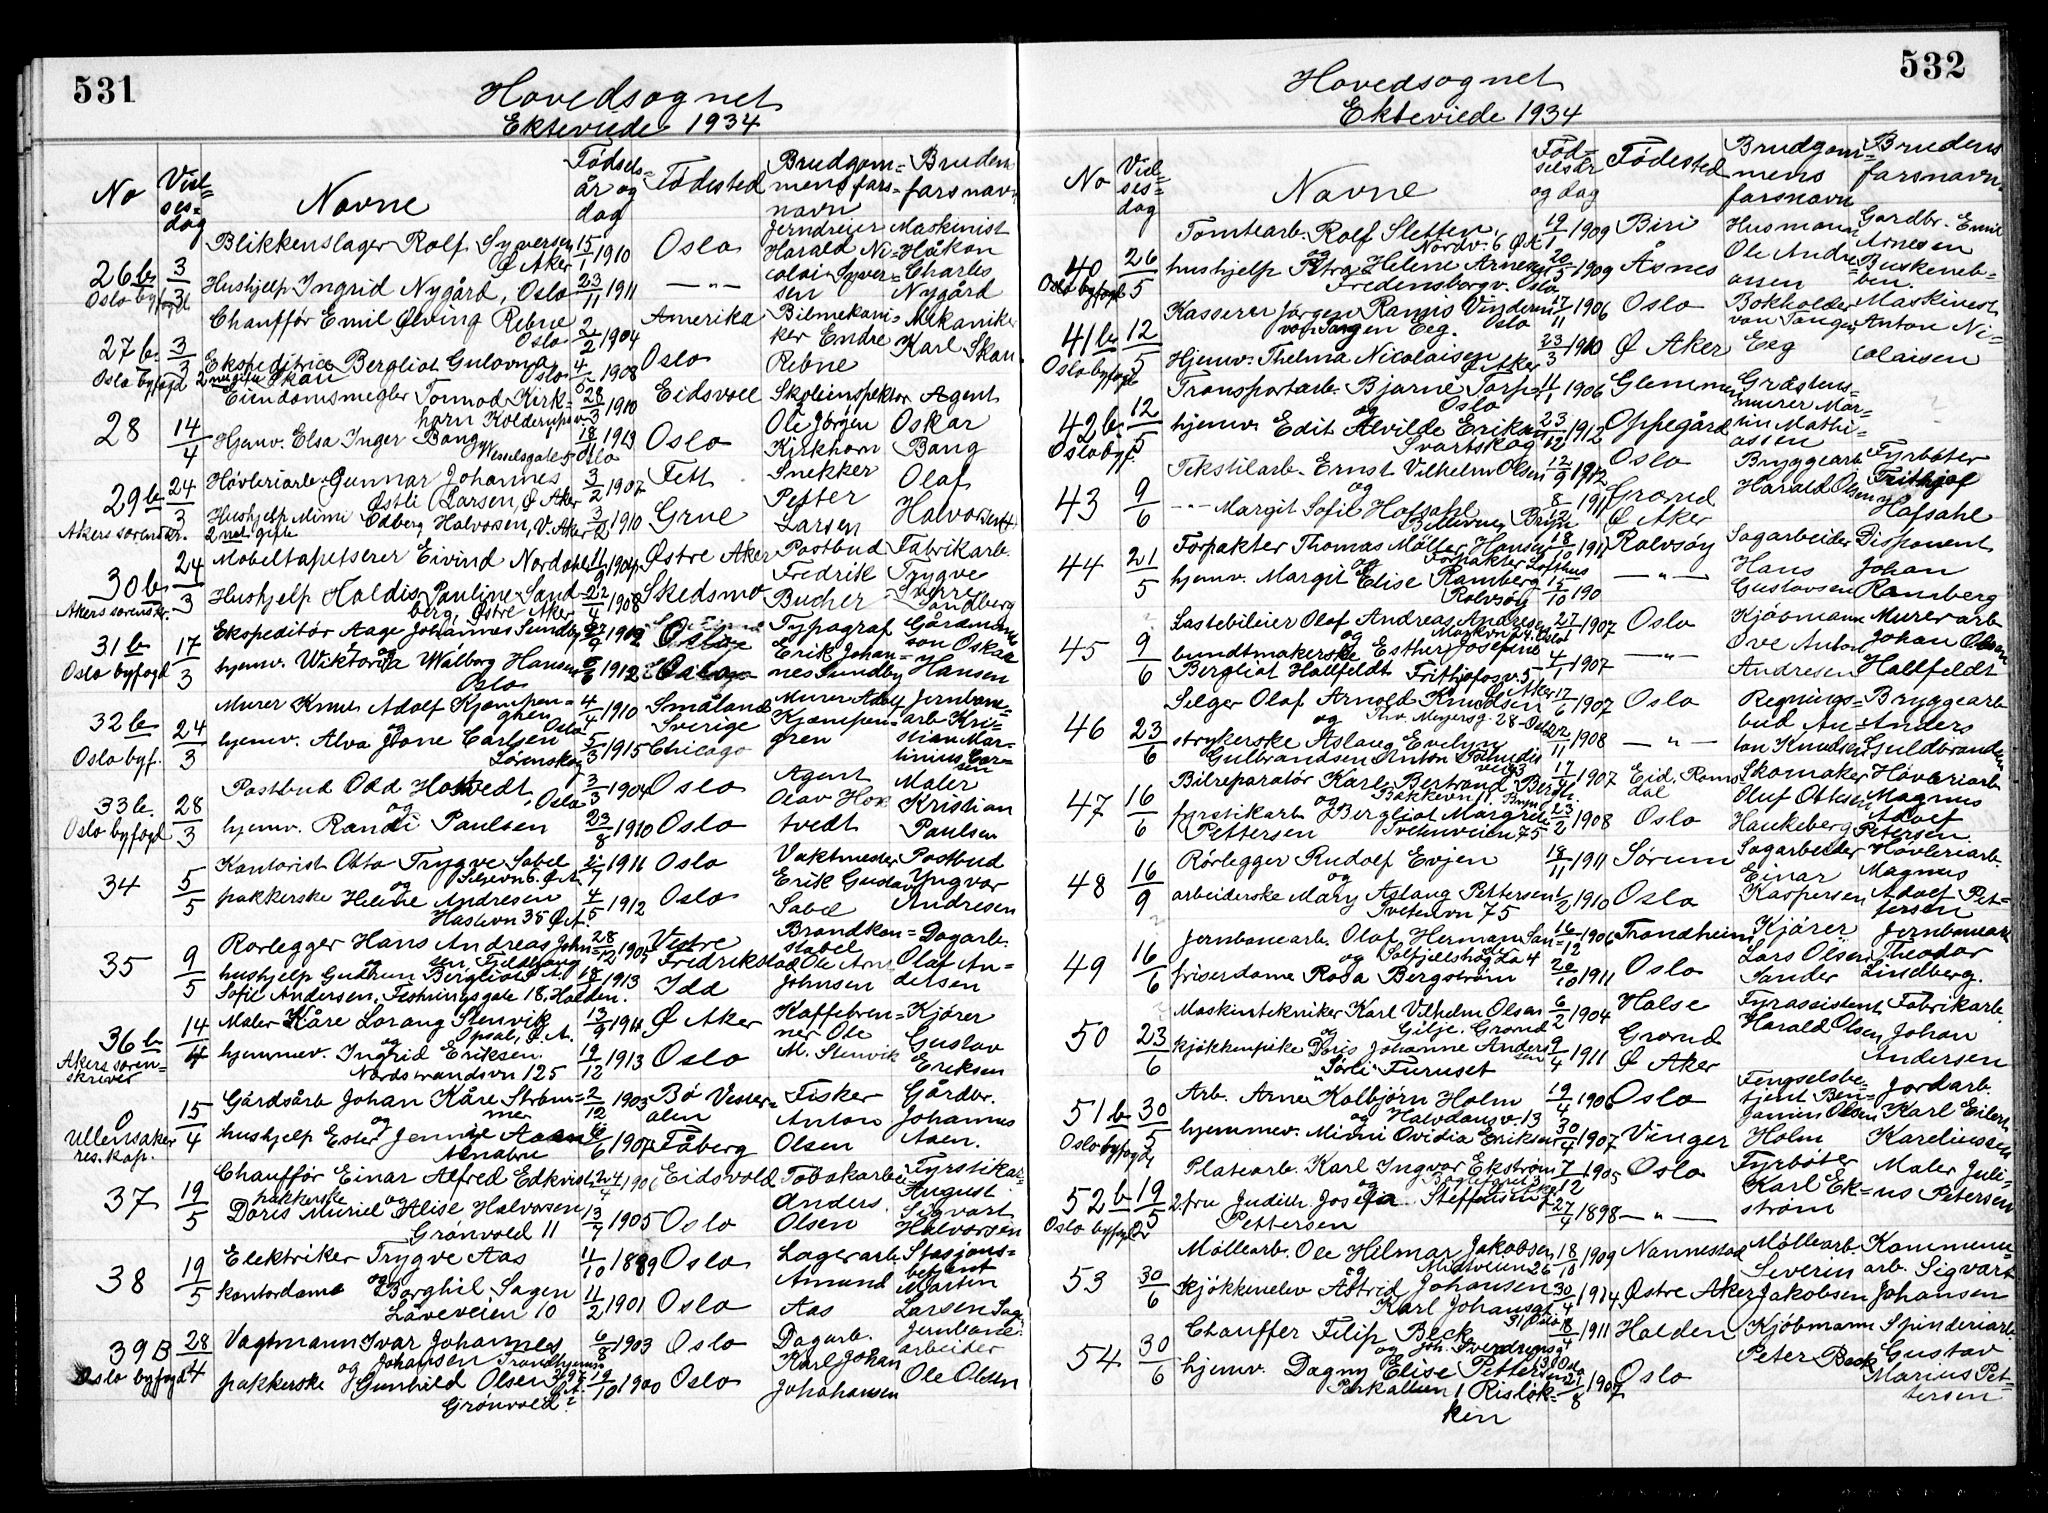 531
Hovedsognet
Ekteviede 1934
No
Viel-
ses-
dag
Navne
Fødsels-
år og
dag
Fødested
Brudgom-
mens fars-
navn
Brudens
farsnavn
26b 3/3 Oslo byfogd
Blikkenslager Rolf Syversen Ø Aker 15/1 1910 Oslo Jerndreier Harald Nicolai Syversen Maskinist Håkon Charles Nygård
Hushjelp Ingrid Nygård, Oslo 23/11 1911 —"—
27b. 3/3 Oslo byfogd
Chauffør Emil Øiving Rebne Oslo 2/2 1904 Amerika Bilmekaniker Endre Rebne Mekaniker Karl Skau
Ekspeditrice Bergliot Gulovna Skau Oslo 1908 Oslo
28 14/4
Eiendomsmegler Tormod Kirkhorn 28/3 1910 Eidsvoll Skoleinspektør Ole Jørgen Kirkhorn Agent Oskar Bang
Hjemv. Elsa Inger Bang Wesselsgate 5 Oslo 18/11 1913 Oslo
29b 24/3 Akers sorenskr.
Høvleriarb. Gunnar Johannes Østli Larsen, Ø Aker 3/2 1907 Fett Snekker Petter Larsen Olaf Halvorsen
Hushjelp Mimi Edberg Halvosen, V. Aker 1910 Grue
2 net gifte
30b 24/3 Akers sorenskr.
Møbeltapetserer Eivind Nordahl 11/9 1904 Østre Aker Postbud Fredrik Bucher Fabrikarb. Trygve Sverre Sandberg
Hushjelp Haldis Pauline Sandberg, Østre Aker 22/4 1908 Skedsmo
31b 17/3 Oslo byfogd
Ekspeditør Aage Johannes Sundby 1902 Oslo Typograf Erik Johannes Sundby Gårdmannsson Oskar Hansen
hjemv. Wiktoria Walborg Hansen Oslo 1912 Oslo
32b 24/3 Oslo byf.
Murer Knut Adolf Kjæmpengren Oslo 4/4 1910 Småland Sverige Murer Adolf Kjæmpengren Jernbanearb Kristian Martinius Carlsen
hjemv. Alva Jane Carlsen Lørenskog 5/3 1915 Chicago
33b. 28/3 Oslo byfogd
Postbud Odd Hovtvedt, Oslo 3/3 1904 Oslo Agent Olav Hovtvedt Maler Kristian Paulsen
og
hjemv. Randi Paulsen 23/8 1910 Oslo
34 5/5
Kontorist Otto Trygve Sabel 1911 Oslo Vaktmester Erik Gustav Sabel Postbud Yngvar Andresen
pakkerske Helene Andresen Haslevn 35 Ø.A. 4/5 1912 Oslo
35 9/5
Rørlegger Hans Andreas Johnsen 28/12 1905 Vestre Fredrikstad Brandkonstabel Ole Arnt Johnsen Dagarb. Olaf Andersen
hushjelp Gudrun Bergliot Sofie Andersen, Festningsgate 18, Halden. 18/5 1913 Idd
36b 14/4 Akers sorenskriver
Maler Kåre Lorang Stenvik Opsal, Ø.A. 13/9 1911 Ø Aker Kaffebrenner Ole M. Stenvik Kjører Gustav Eriksen
og
hjemmev. Ingrid Eriksen. Nordstrandsvn 125 19/12 1913 Oslo
0 15/4 Ullensaker res. kap.
Gårdsarb Johan Kåre Strømmer 2/12 1903 Bø Vesterålen Fisker Anton Olsen Gårdbr. Johannes Aaen.
og
hushjelp Ester Jenny Aaen Alnabru 1904 Fåberg
37 19/5
Chauffør Einar Alfred Edkvist 24/4 1906 Eidsvold Tobakarb Anders Olsen Fyrstikarb August Sigvart Halvorsen
pakkerske og
Doris Muriel Alise Halvorsen Grønvold 11 13/7 1905 Oslo
38 19/5
Elektriker Trygve Aas 11/10 1899 Oslo Lagerarb Amund Aas Stasjonsbetjent Martin Larsen Sagen
kontordame og Borghil Sagen Låveveien 10 11/2 1901 Oslo
39B 28/4 Oslo byfogd
Vagtmann Ivar Johannes Johansen 6/8 1903 Oslo Dagarb. Karl Johan Johahansen Jernbanearbeider Ole Olsen
og
pakkerske Gunhild Olsen Grønvold 19/10 1900 Oslo
532
Hovedsognet
Ekteviede 1934
No
Viel-
ses-
dag
Navne
Fød-
selsår
og dag
Fødested
Brudgom-
mens
farsnavn
Brudens
farsnavn
40 26/5 Oslo byfogd
Tomtearb. Rolf Sletten, Nordv. 6 Ø.A. 19/1 1909 Biri Husmann Ole Andreassen Gardbr. Emil Arnesen Buskenebben.
hushjelp Petra Helene Arnesen Fredensborgv. Oslo 20/5 1909 Åsnes
41b 12/5 Oslo byfogd
Kasserer Jørgen Ramis Vinderen von Tangen Eeg. Oslo 17/11 1906 Oslo Bokholder von Tangen Eeg Maskinest Anton Nicolaisen
Hjemv. Thelma Nicolaisen Ø Aker 23/3 1910 Ø Aker
42b. 12/5 Oslo byf.
Transportarb. Bjarne Torp Oslo 1906 Glemmen Gråstensmurer Martin Mathiassen
og
hjemv. Edit Alvilde Eriksen Svartskog 23/12 1912 Oppegård
43 9/6
Tekstilarb. Ernst Vilhelm Olsen 12/9 1912 Oslo Bryggearb Harald Olsen Fyrbøter Frithjof Hofsahl
og
-"- Margit Sofie Hofsahl Bryn 8/12 1911 Grorud Ø Aker
44 21/5
Forpakter Thomas Møller Hansen 18/10 1911 Rolvsøy Sagarbeider Hans Gustavsen Disponent Johan Ramberg
hjemv. Margit Elise Ramberg Rolvsøy 15/10 190 —"—
45 9/6
Lastebileier Olaf Andreas Andresen 27/1 1907 Oslo Kjøbmann Ove Anton Andresen Murerarb Johan Olsen Hallfeldt
og
bundtmakerske Esther Josefine Bergliot Hallfeldt Frithjofosv. 5 Ø Aker 4/1 1907 —"—
46 23/6
Selger Olaf Arnold Knudsen Thv. Meyersg. 28 Oslo 17/6 1907 Oslo Regningsbud Anton Knudsen Bryggearb Anders Guldbrandsen
og
strykerske Aslaug Evelyn Gulbrandsen Anton Schmidts vei 23 22/11 1908 —"—
47 16/6
Bilreparatør Karl Bertrand Bergh. Bakkevn 11. Bryn 17/4 1907 Eid. Romsdal Skomaker Oluf Ottesen Haukeberg Høvleriarb. Magnus Adolf Petersen.
og
fyrstikarb Bergliot Margrete Pettersen Tvetenveien 75 23/2 1908 Oslo
48 16/9
Rørlegger Rudolf Evjen 18/11 1911 Sørum Sagarbeider Einar Kaspersen Høvleriarb. Magnus Adolf Petersen
og
arbeiderske Mary Aslaug Pettersen Tvetenvn 75 1/2 1910 Oslo
49 16/6
Jernbanearb. Olaf Herman Sander 16/12 1906 Trondheim Kjører Lars Olsen Sander Jernbanearb Theodor Lindberg.
og
friserdame Rosa Bergstrøm 20/10 1911 Oslo
50 23/6
Maskintekniker Karl Vilhelm Olsen Gilje. Grorud 6/2 1904 Halse Fyrassistent Harald Olsen Fabrikarb. Johan Andersen
og
kjøkkenpike Doris Johanne Andersen "Sørli" Furuset 9/4 1911 Grorud Ø Aker
51b 30/5 Oslo byfogd
Arb. Arne Kolbjørn Holm 19/4 1906 Oslo Fengselsbetjent Benjamin Olsen Holm Jordarb. Karl Eilert Kareliussen
og Halvdansv. 13
hjemmev. Mimi Ovidia Eriksen 30/4 1907 Vinger
52b 19/5 Oslo byfogd
Platearb. Karl Ingvar Ekstrøm 7/12 1905 Oslo Fyrbøter Karl Ekstrøm Maler Julius Petersen
og
2. fru Judith Josefa Steffensen f. Pettersen 27/4 1898 —"—
53 30/6
Møllearb. Ole Hilmar Jakobsen Midtveien 26 18/10 1909 Nannestad Møllearb. Severin Jakobsen Kommunearb. Sigvart Johansen
og
kjøkkenelev Astrid Johansen Karl Johansgt. 31 Oslo 30/4 1914 Østre Aker
54 30/6
Chauffør Filip Beck 8/4 1911 Halden Kjøbmann Peter Beck Spinderiarb Gustav Marius Pettersen
og Joh. Svendsensg
hjemv. Dagny Elise Pettersen Parkalleen 1 Risløkken 21/8 1907 Oslo